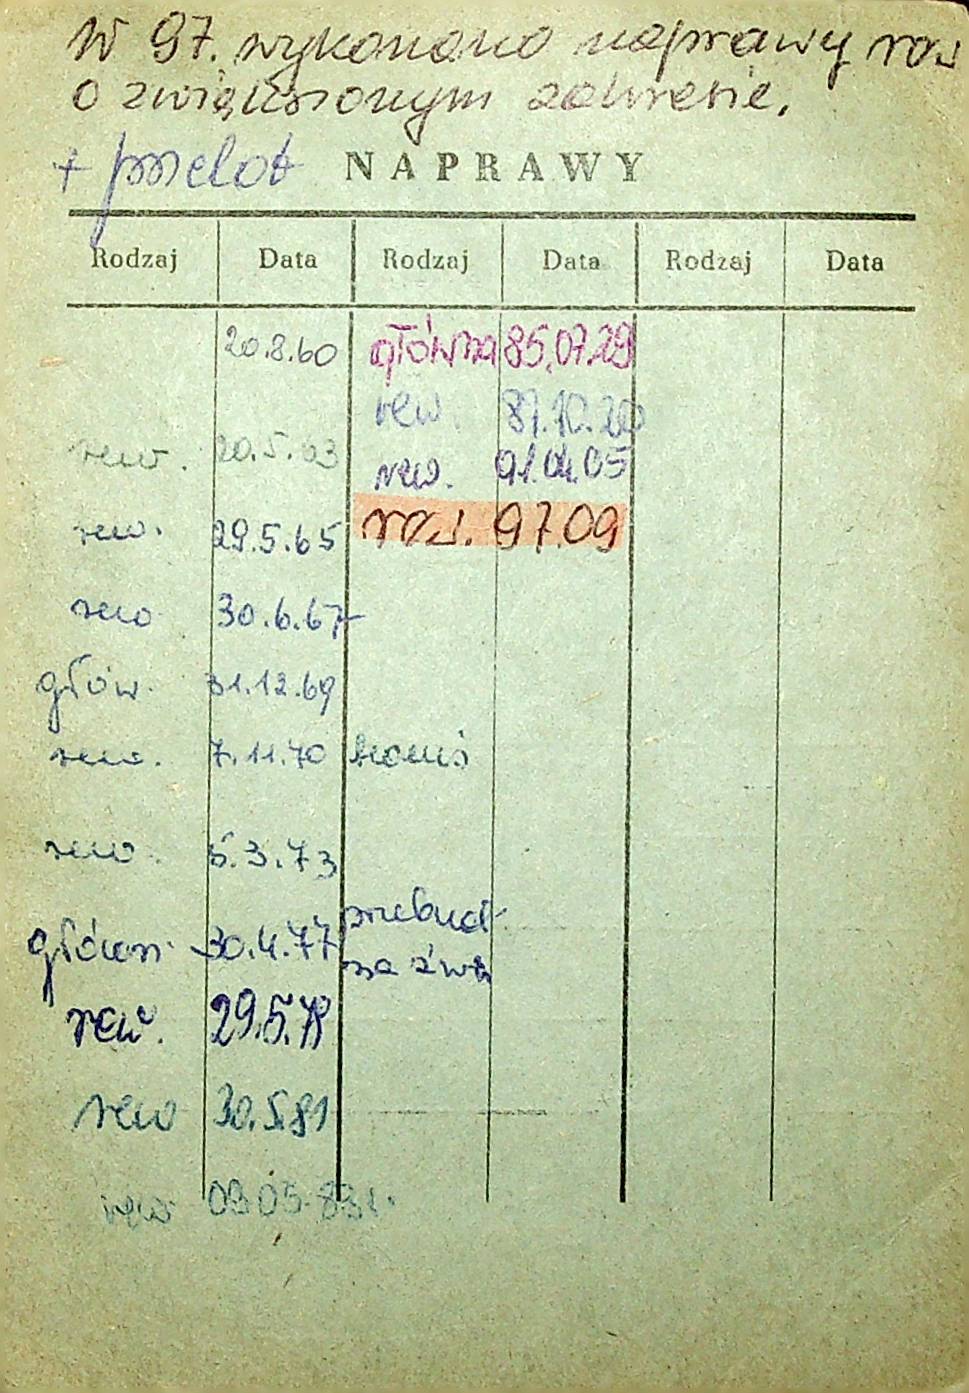 W 97. wykonano naprawy rew
o zwiększonym zakresie.
+ przelot NAPRAWY
Rodzaj Data Rodzaj Data Rodzaj Data
20.8.60 główna 85.07.29
rew. 20.5.63 rew. 87.10.20
rew. 91.04.05
rew. 29.5.65 rew. 97.09
rew 30.6.67
głów. 31.12.69
rew. 7.11.70
rew. 5.3.73
główn. 30.4.77 przebud.
na
rew. 29.5.79
rew 30.5.81
rew 03 05 83r.